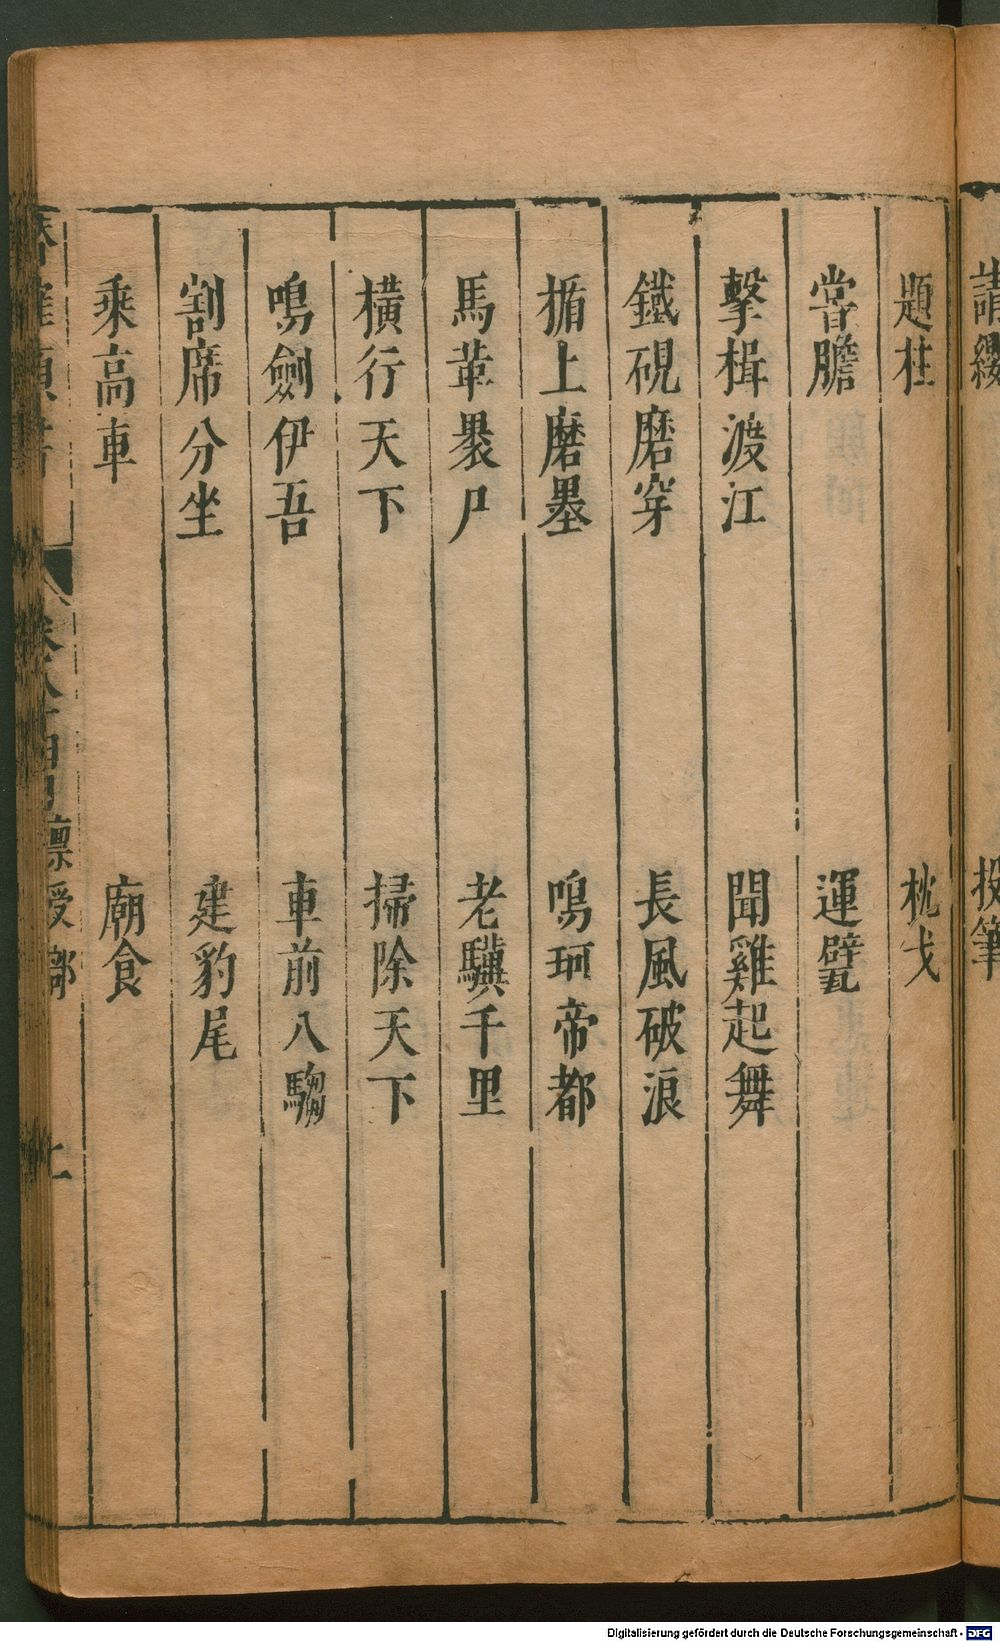 請纓 投筆
題柱 枕戈
嘗膽 運甓
擊楫渡江 聞雞起舞
鐵硯磨穿 長風破浪
楯上磨墨 鳴珂帝都
馬革裹尸 老驥千里
橫行天下 掃除天下
鳴劍伊吾 車前八騶
割席分坐 建豹尾
乘高車 廟食
卷八十四 稟受部
Digitalisierung gefördert durch die Deutsche Forschungsgemeinschaft - DFG